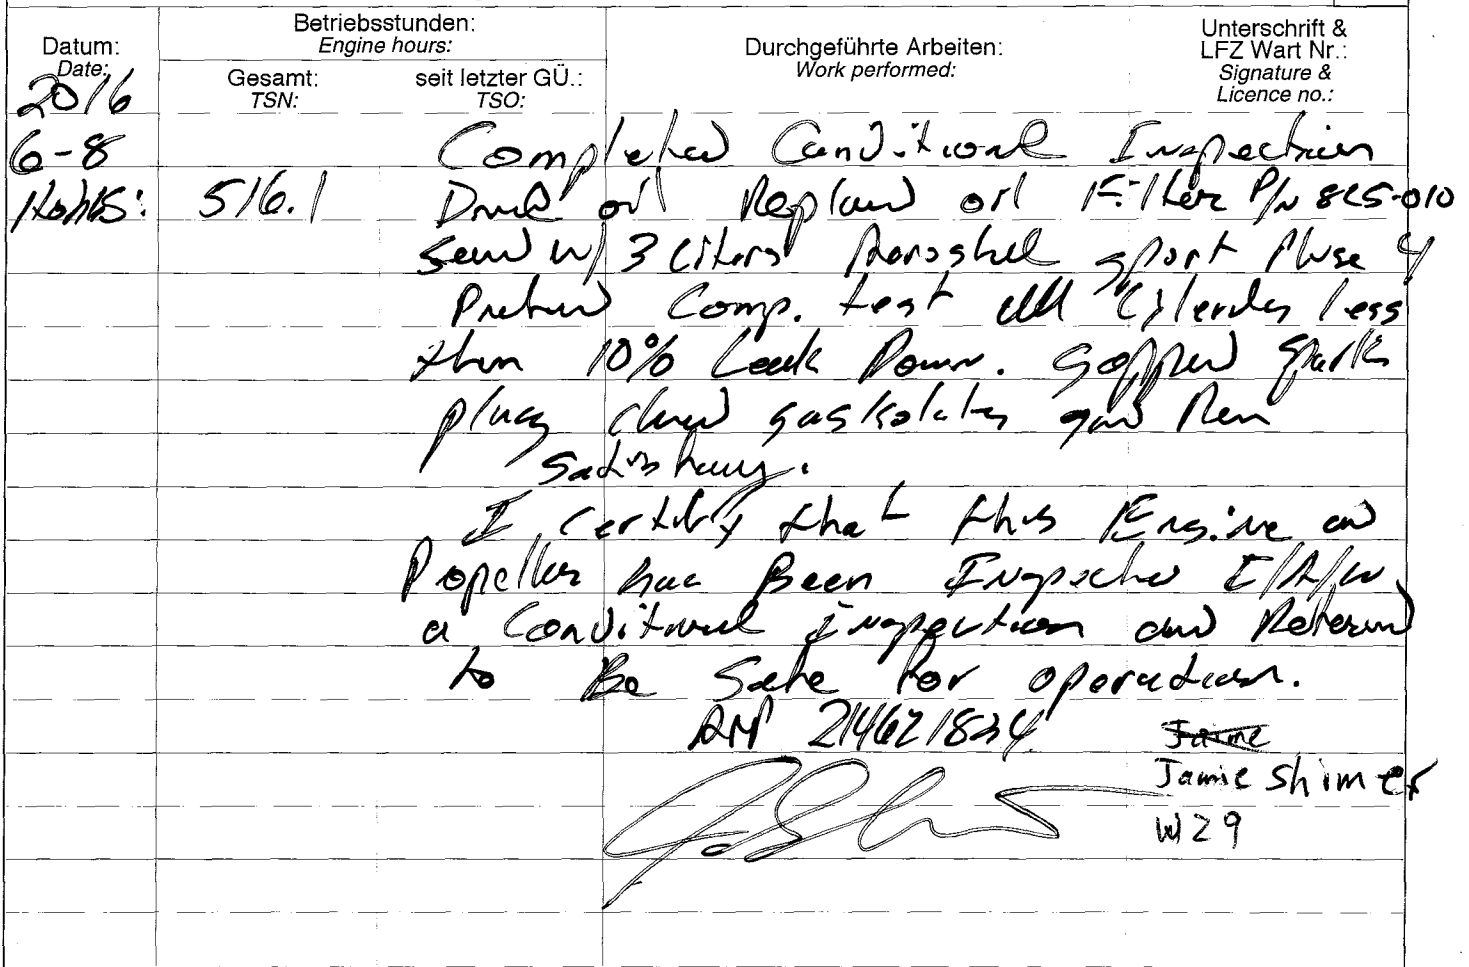 Datum:
Date:
Betriebsstunden:
Engine hours:
Gesamt:
TSN:
seit letzter GÜ.:
TSO:
Durchgeführte Arbeiten:
Work performed:
Unterschrift &
LFZ Wart Nr.:
Signature &
Licence no.:
2016
6-8 Completed Conditional Inspection
Hobbs: 516.1 Draind oil Replaced oil Filter P/N 825-010
w/ 3 Liters Aeroshell sport Pluse 4
Comp. test all Cylenders less
than 10% Leak Down. Gapped Spark
plugs and Run
I certify that this Engine and
Propeller has Been Inspected I/A/W
a Conditional inspection and Returned
to Be Safe for operation.
AMP 214621834
Jaime
Jamie Shimer
W29